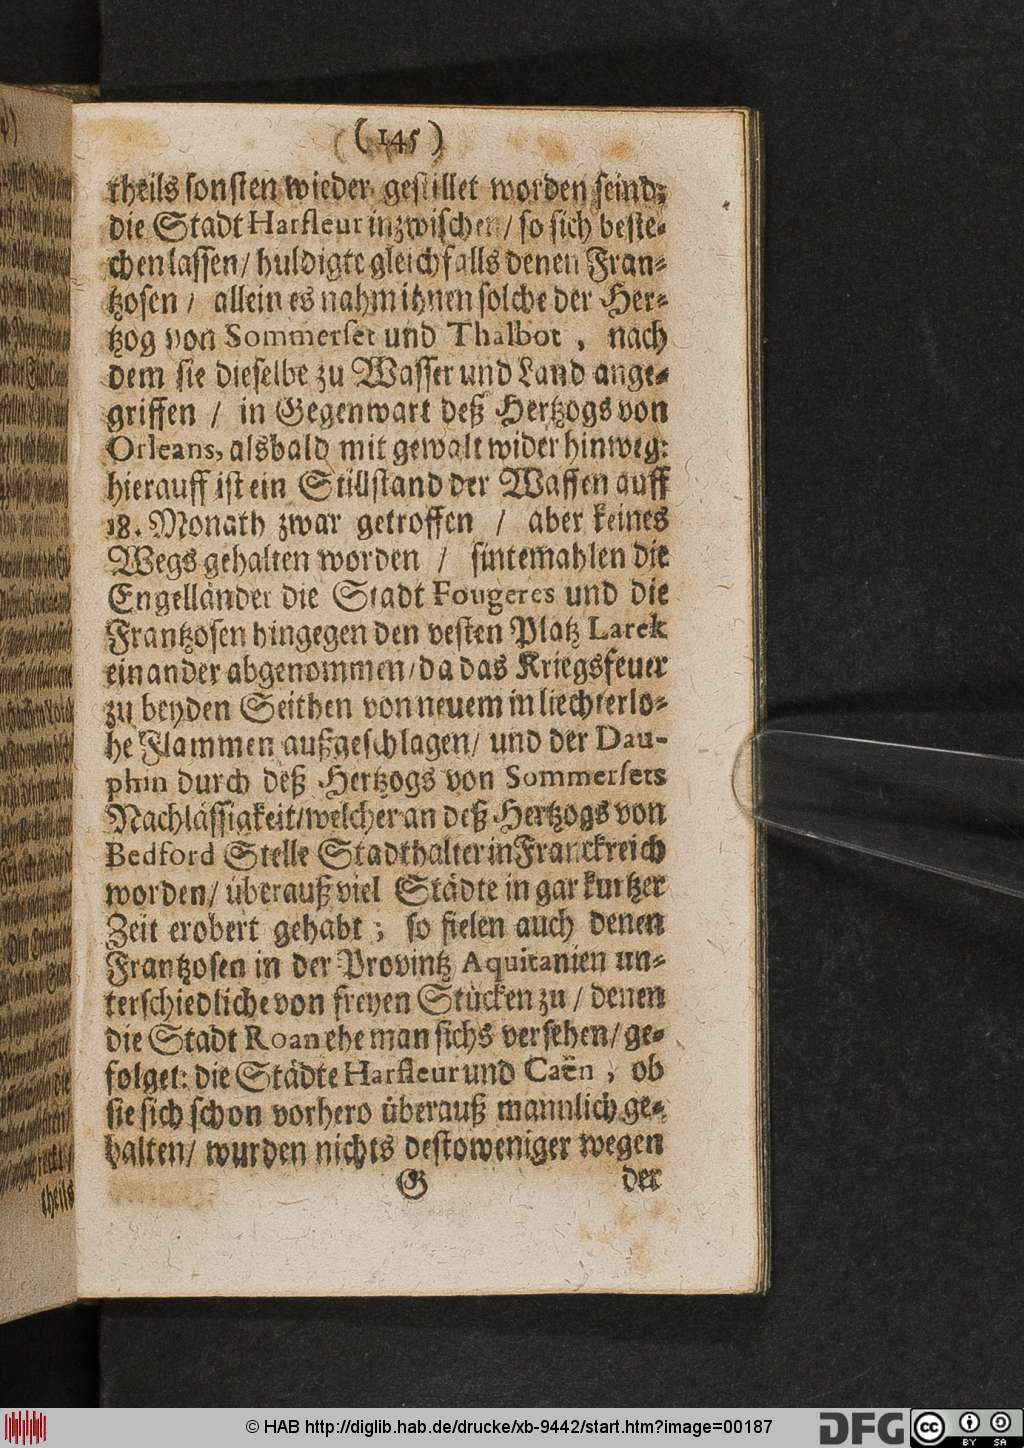 (145)
theils sonsten wieder gestillet worden seind;
die Stadt Harfleur inzwischen / so sich beste-
chen lassen / huldigte gleichfalls denen Fran-
tzosen / allein es nahm ihnen solche der Her-
tzog von Sommerset und Thalbot, nach
dem sie dieselbe zu Wasser und Land ange-
griffen / in Gegenwart deß Hertzogs von
Orleans, alsbald mit gewalt wider hinweg:
hierauff ist ein Stillstand der Waffen auff
18. Monath zwar getroffen / aber keines
Wegs gehalten worden / sintemahlen die
Engelländer die Stadt Fougeres und die
Frantzosen hingegen den vesten Platz Larek
einander abgenommen / da das Kriegsfeuer
zu beyden Seithen von neuem in liechterlo-
he Flammen außgeschlagen / und der Dau-
phin durch deß Hertzogs von Sommersets
Nachlässigkeit / welcher an deß Hertzogs von
Bedford Stelle Stadthalter in Franckreich
worden / überauß viel Städte in gar kurtzer
Zeit erobert gehabt; so fielen auch denen
Frantzosen in der Provintz Aquitanien un-
terschiedliche von freyen Stücken zu / denen
die Stadt Roan ehe man sichs versehen / ge-
folget: die Städte Harfleur und Caën, ob
sie sich schon vorhero überauß mannlich ge-
halten / wurden nichts destoweniger wegen
G der
theils
© HAB http://diglib.hab.de/drucke/xb-9442/start.htm?image=00187
DFG
cc BY SA